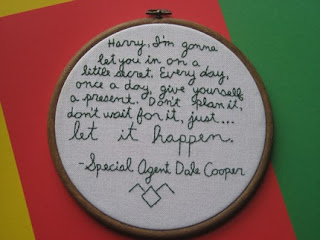 Harry, I'm gonna
let you in on a
little secret. Every day,
once a day, give yourself
a present. Don't plan it,
don't wait for it, just...
let it happen.
-Special Agent Dale Cooper